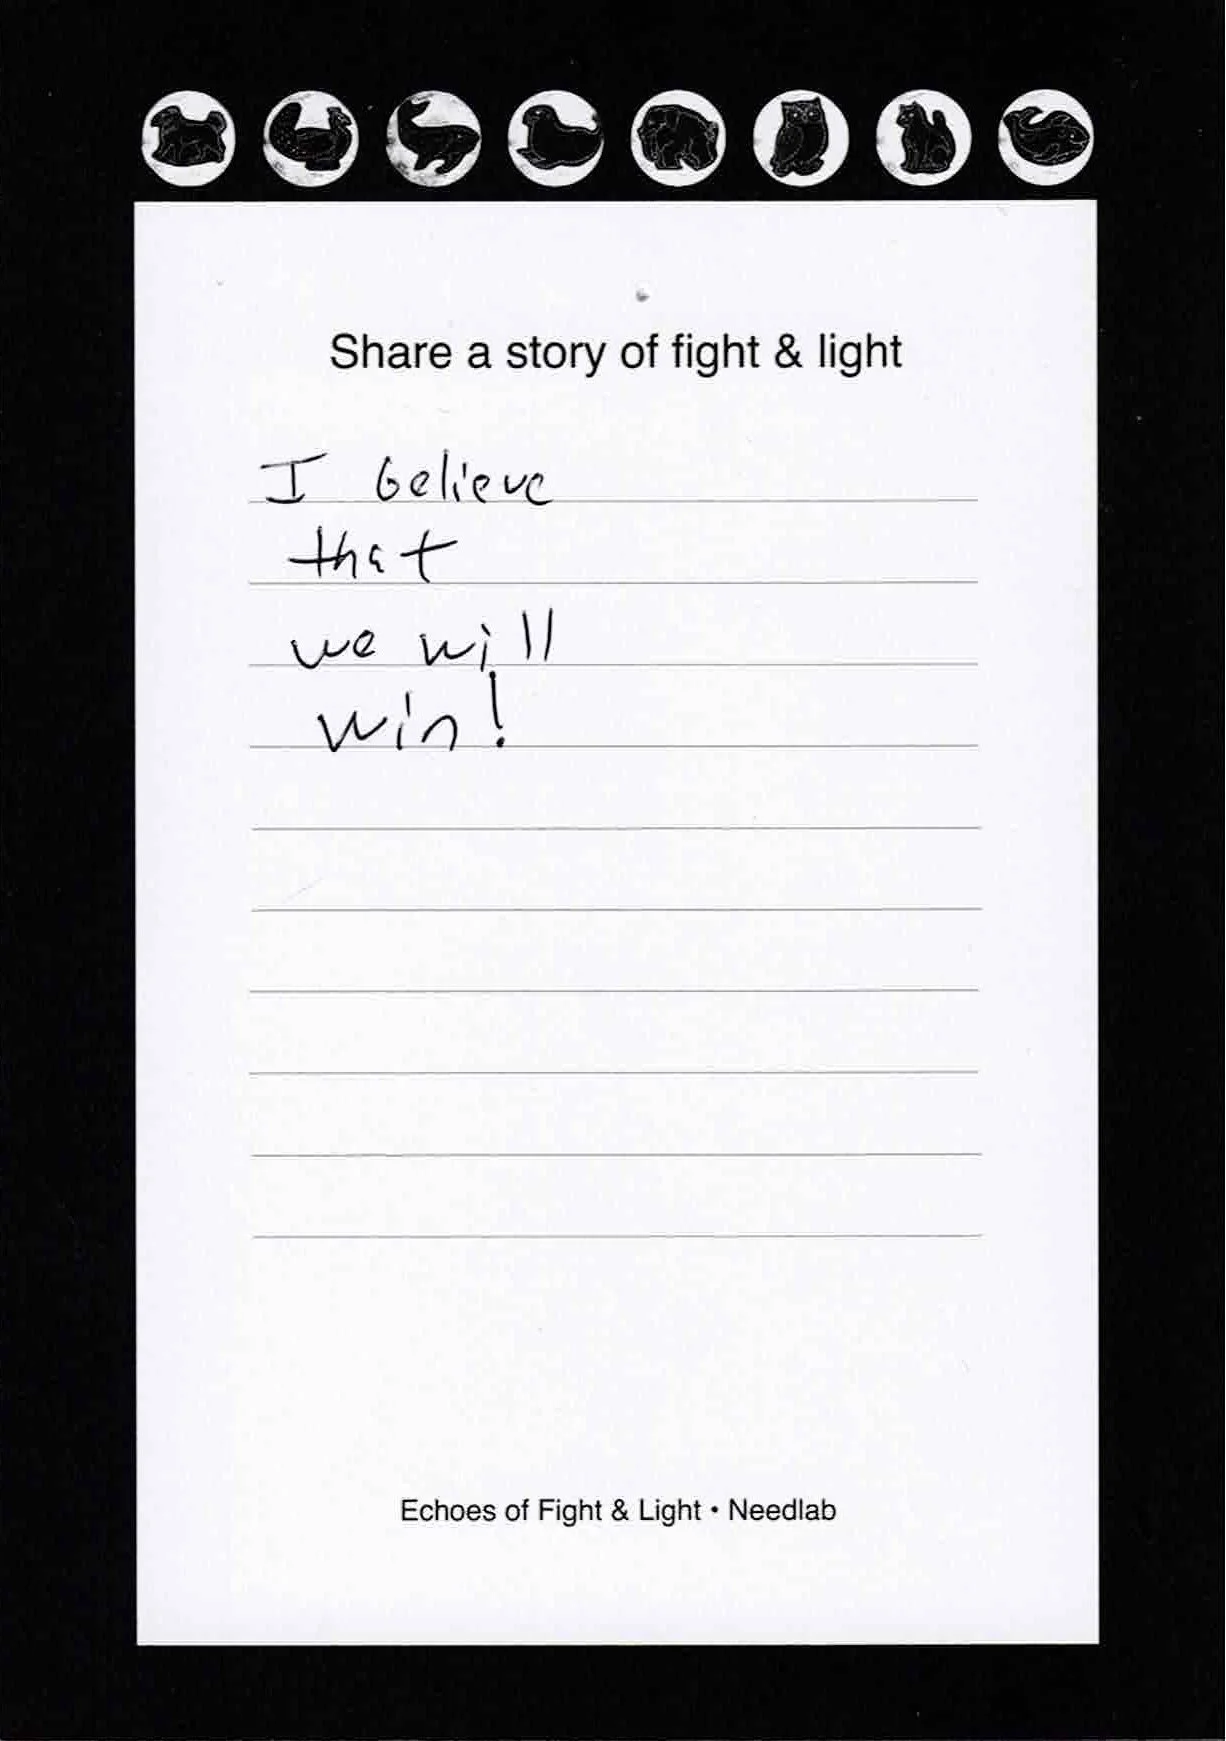 Share a story of fight & light
I believe
that
we will
win!
Echoes of Fight & Light • Needlab